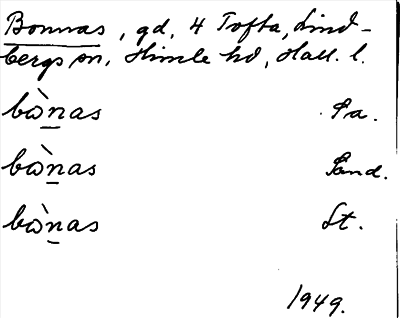 Bonnas, gd, 4 Tofta, Lind-
bergs sn, Himle hd, Hall. l.
bɷ̀nas Pa.
bɷ̀nas Sand.
bɷ̀nas St.
1949.